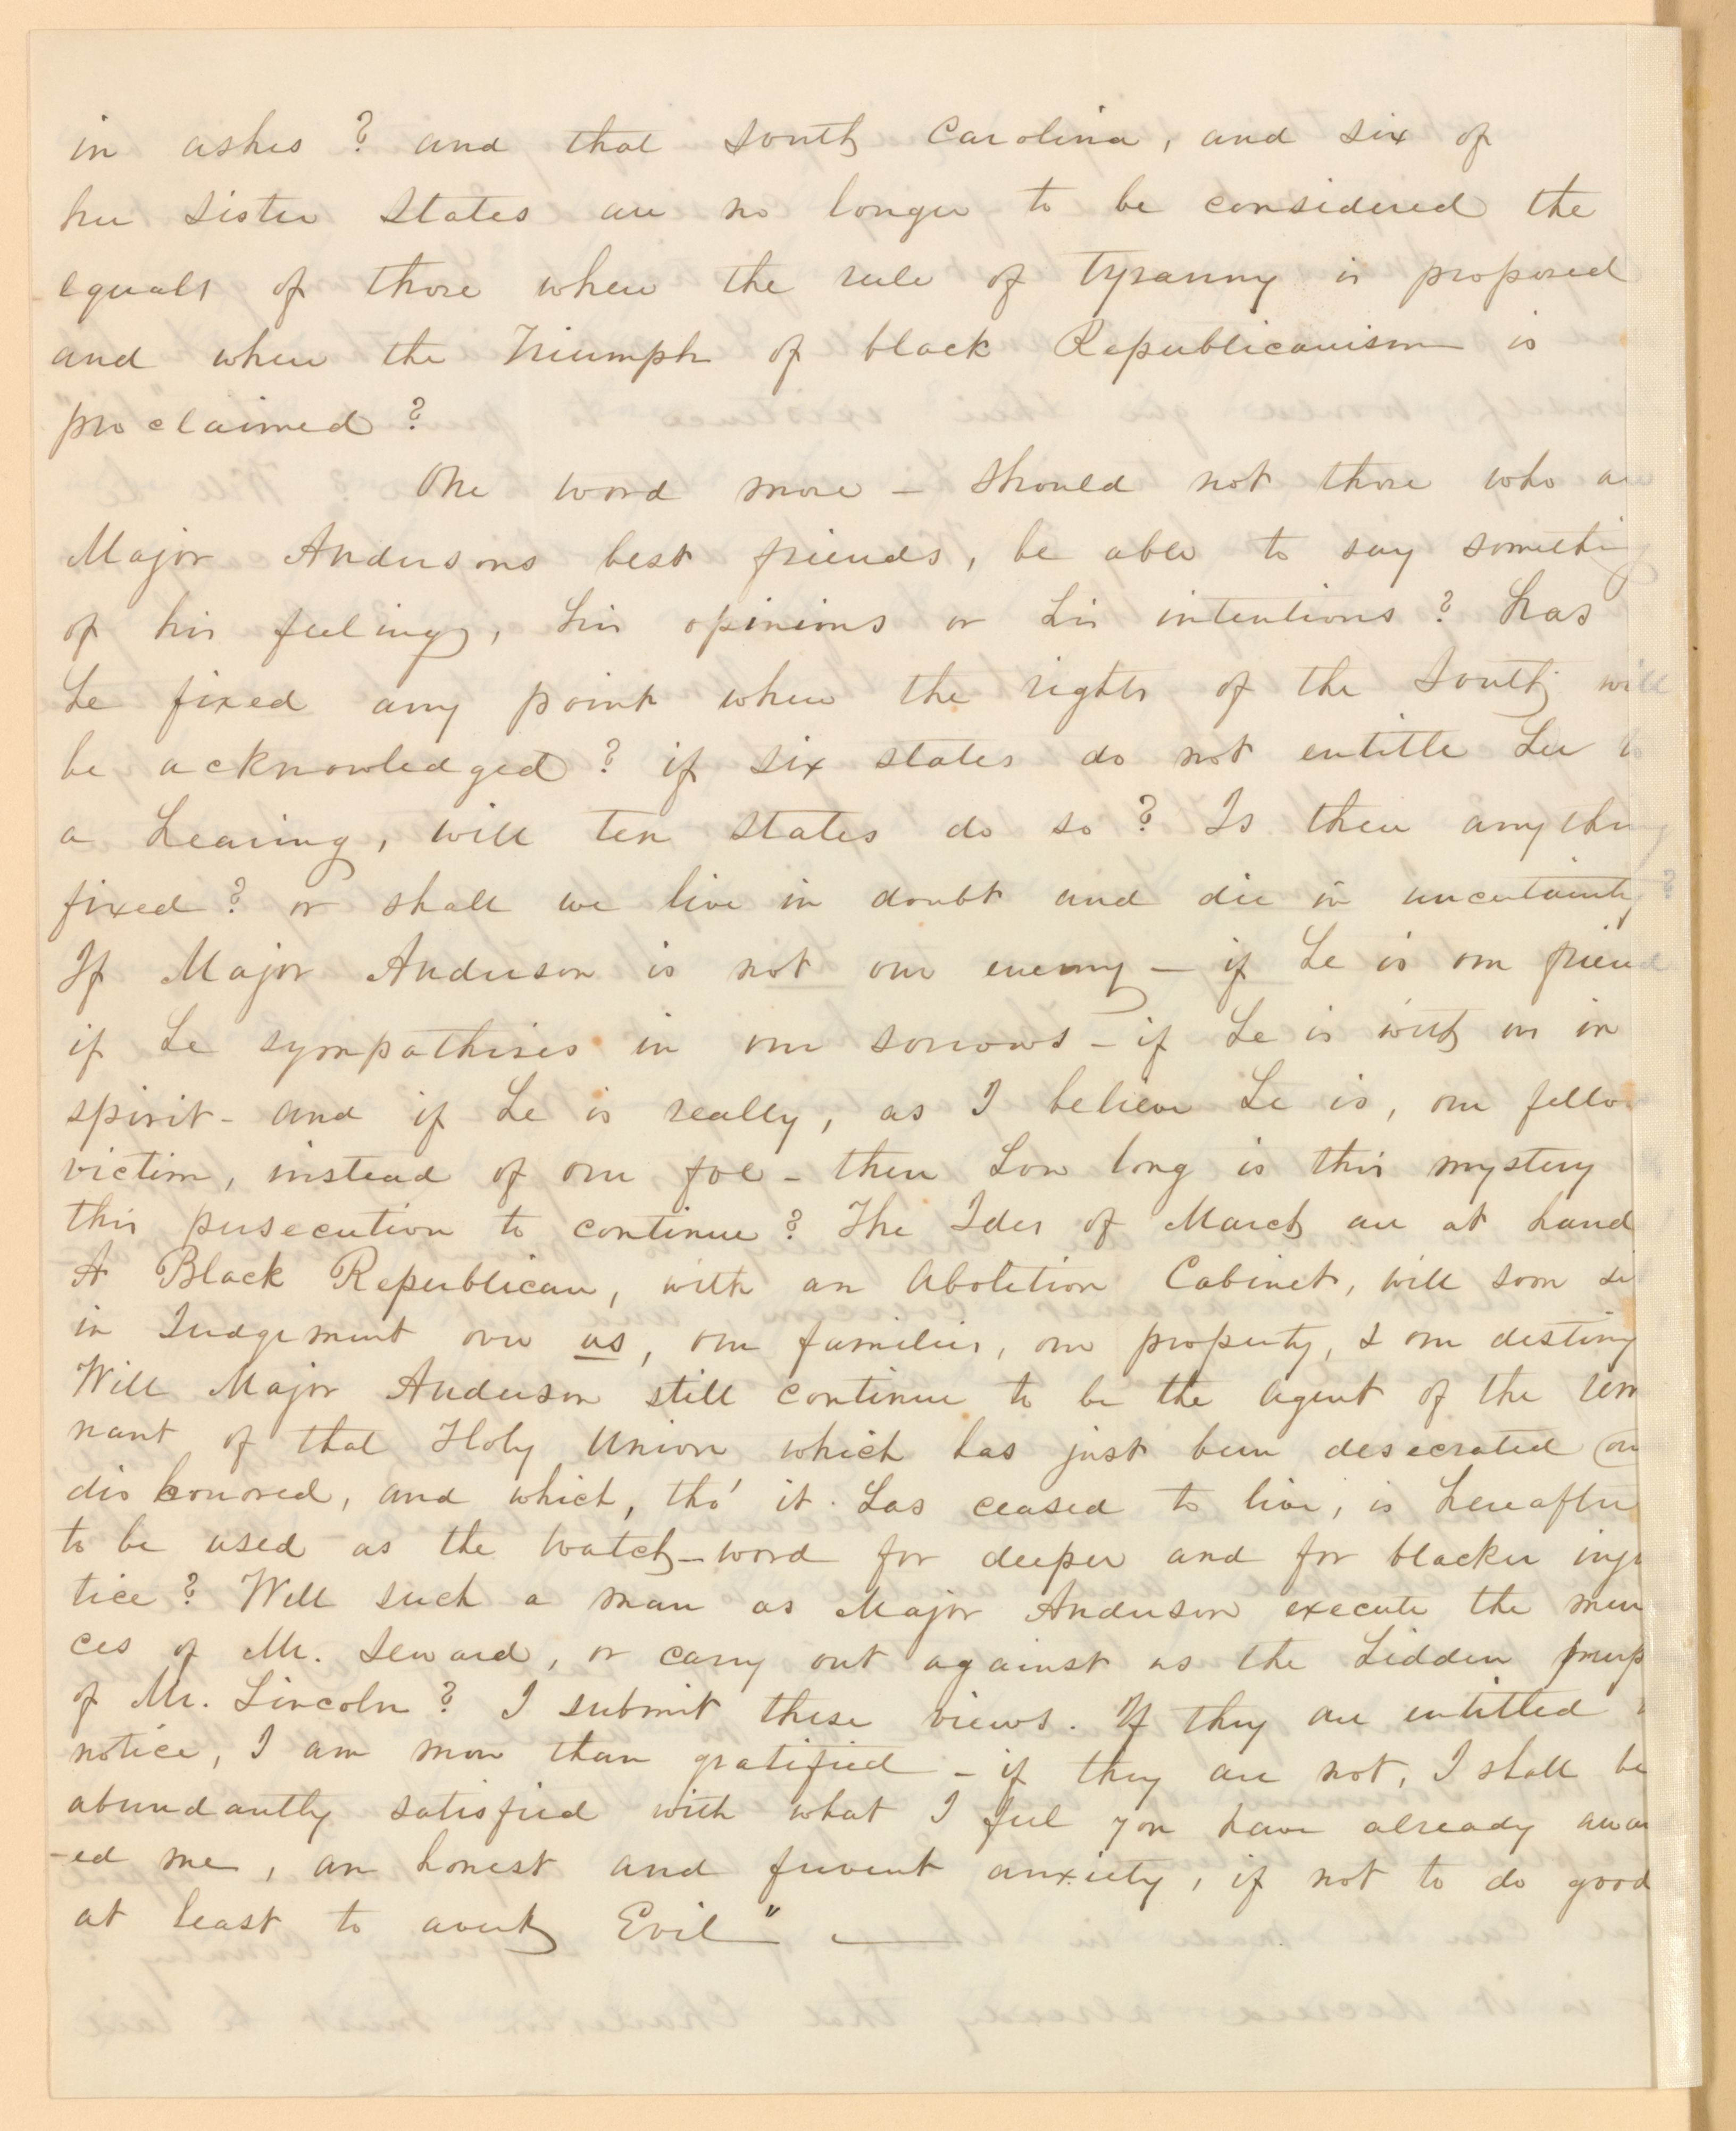 in ashes? and that South Carolina, and six of
her sister States are no longer to be considered the
equals of those where the rule of Tyranny is proposed
and where the Triumph of black Republicanism is
proclaimed?
One word more - Should not those who are
Major Andersons best friends, be able to say something
of his feelings, his opinions or his intentions? has
he fixed any point where the rights of the South will
be acknowledged? if six states do not entitle her to
a hearing, will ten states do so? Is there anything
fixed? or shall we live in doubt and die in uncertainty?
If Major Anderson is not our enemy - if he is our friend
if he sympathises in our sorrows - if he is with us in
spirit - and if he is really, as I believe he is, our fellow
victim, instead of our foe - then how long is this mystery
this persecution to continue? The Ides of March are at hand
A Black Republican, with an Abolition Cabinet, will soon si
in Judgement over us, our families, our property, & our destiny
Will Major Anderson still continue to be the agent of the rem
nant of that Holy Union which has just been desecrated an
dishonored, and which, tho' it has ceased to live, is hereafter
to be used as the watch-word for deeper and for blacker injus
tice? Will such a man as Major Anderson execute the mena
ces of Mr. Seward, or carry out against us the hidden purp
of Mr. Lincoln? I submit these views. If they are entitled
notice, I am more than gratified - if they are not, I shall be
abundantly satisfied with what I feel you have already awar
-ed me, an honest and fervent anxiety, if not to do good
at least to avert Evil"